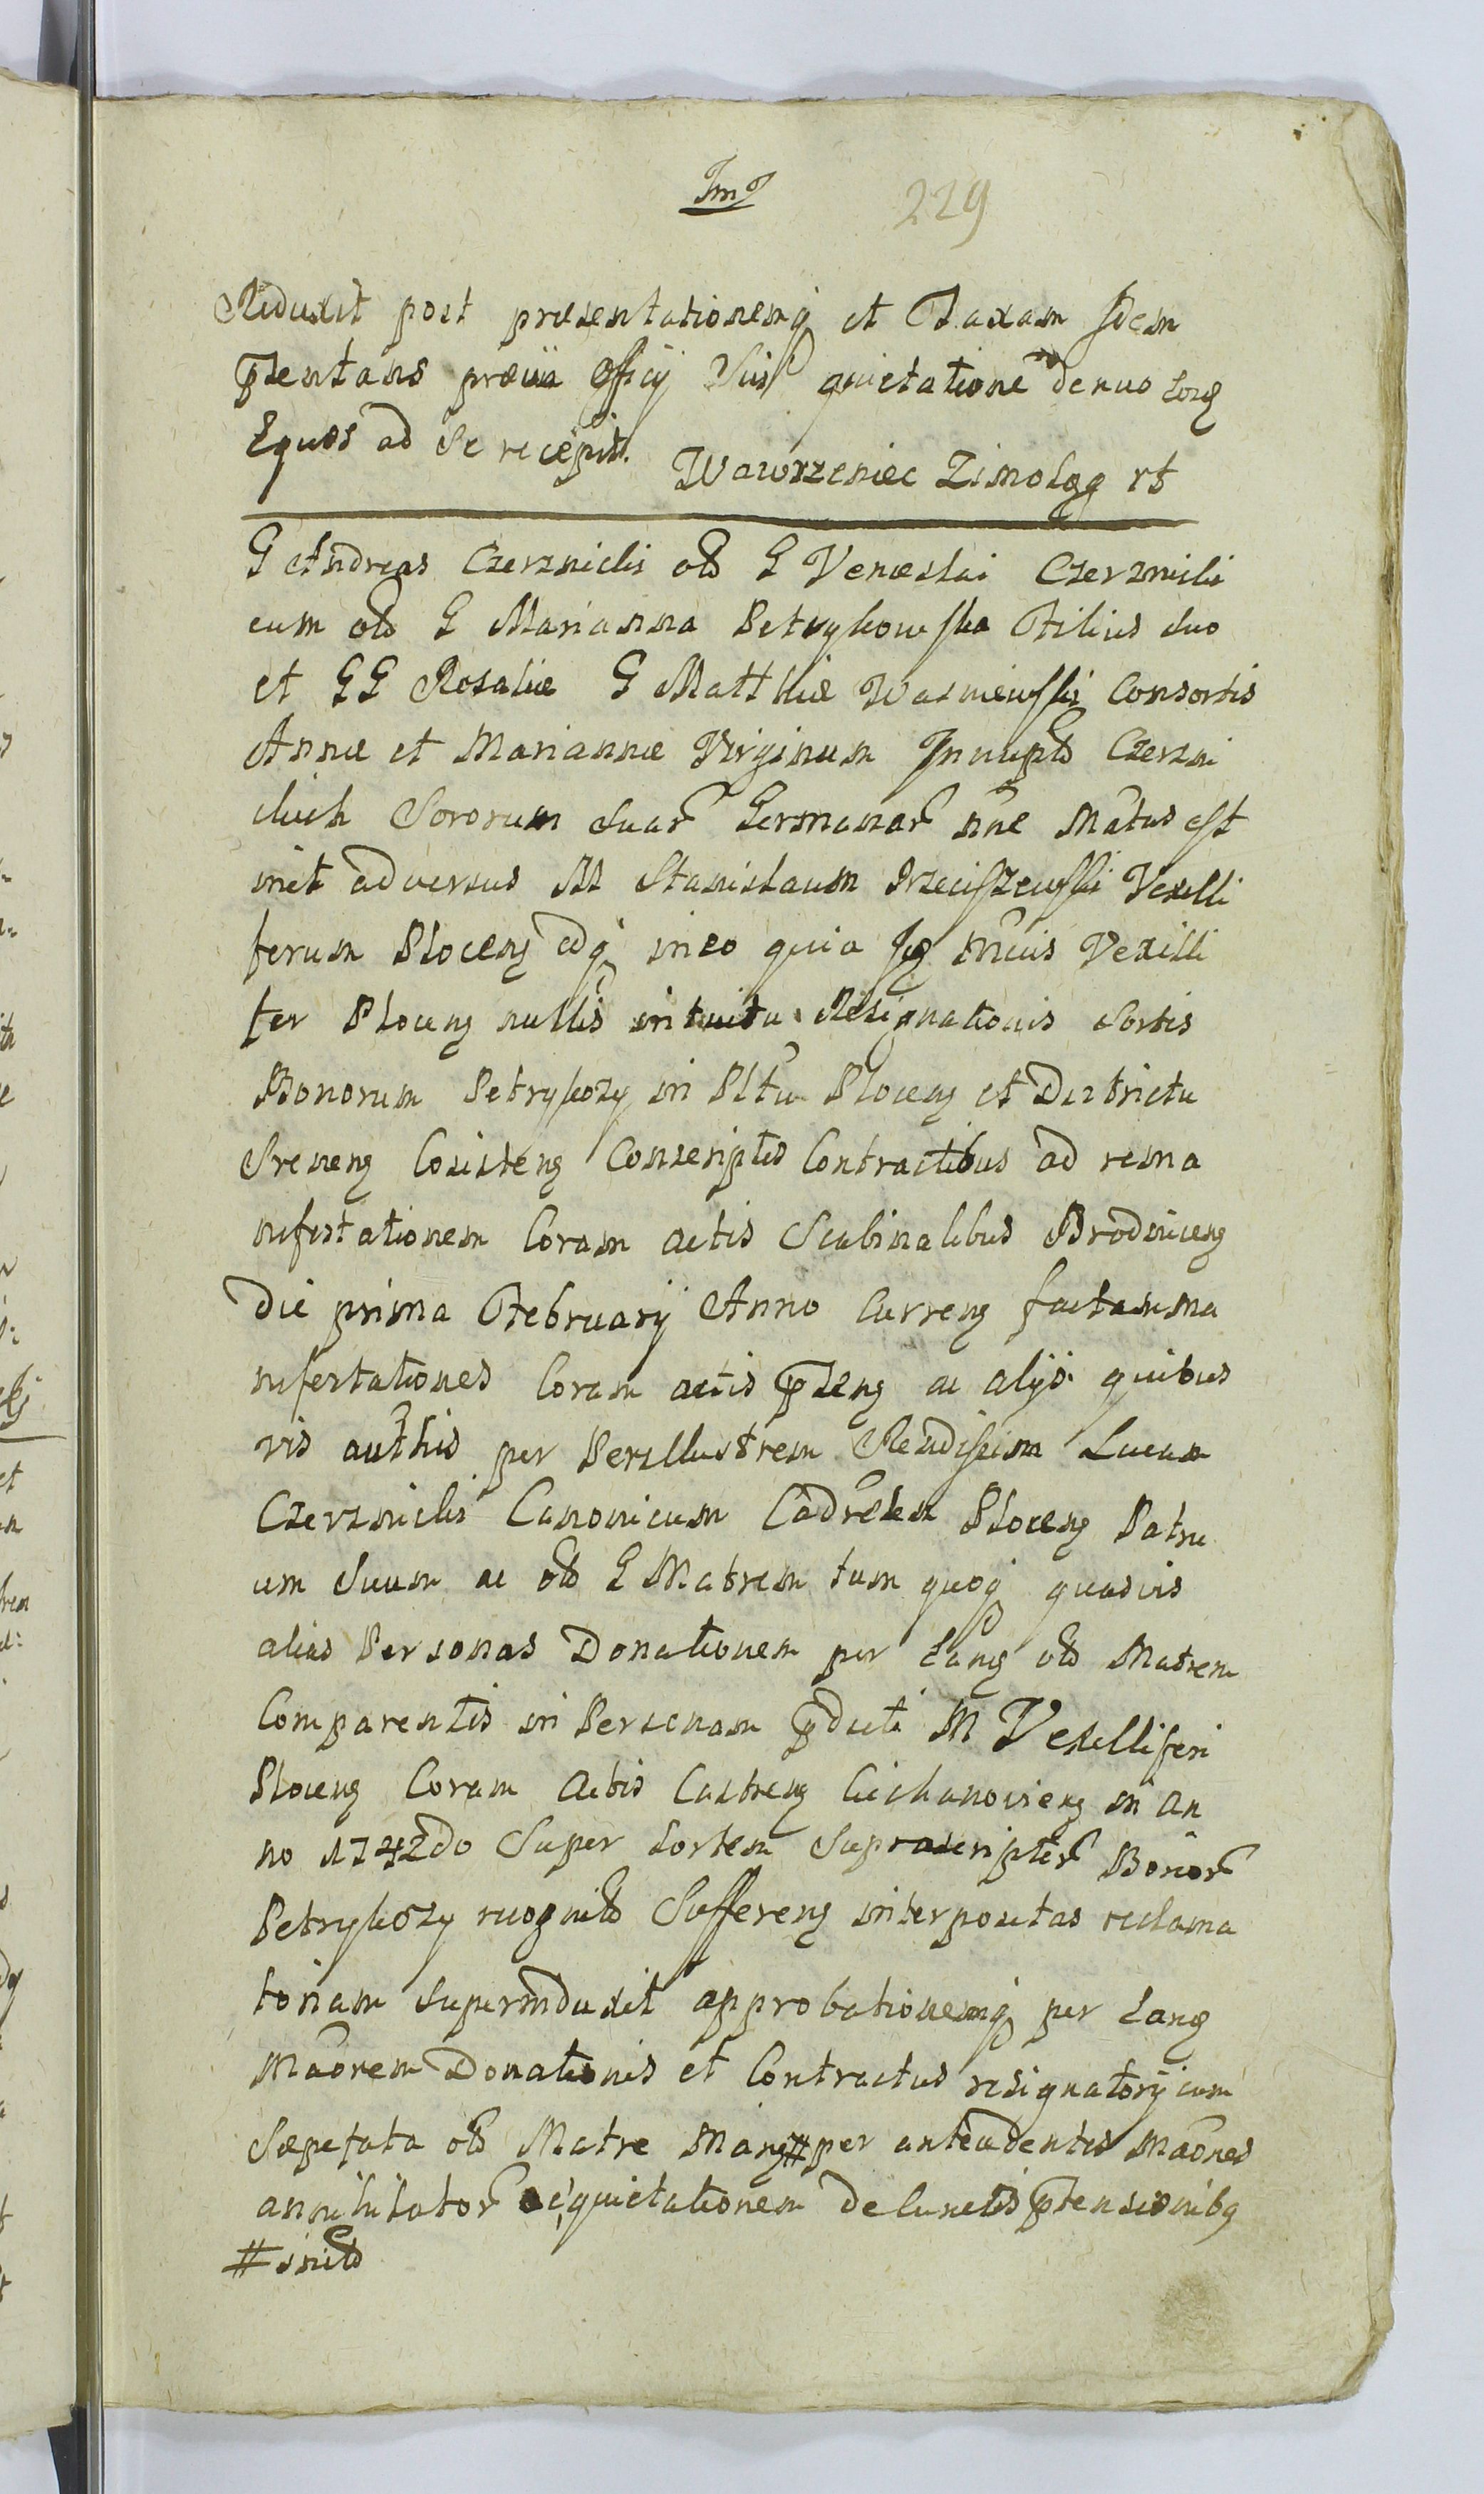 229
Reduxit post præsentationemq et Taxam Idem
Pŝentans prævia Officij Sui quietatione denuo eosq
Equos ad Se recepit. Wawrzeniec Zimoląg rt
G Andreas Czerznicki olo G Venceslai Czerznicki
cum olo G Marianna Petrykowska Filius suo
et GG Rosaliæ G Matthiæ Wasniewski Consortis
Annæ et Mariannæ Virginum Innupto Czerzni
ckich Sororum Suar Germanar nne Mãtus est
init adversus M Stanislaum Orzeciszewski Vexilli
ferum Plocens edq ineo quia Is Mficus Vexilli
fer Plocens nullis intuitu Resignationis Sortis
Bonorum Petrykozy in Pltu Plocens et Districtu
Srenens Cosistens Conscriptis Contractibus ad rema
nifestationem Coram actis Scabinalibus Brodnicens
Die prima Februarij Anno Currens factam ma
nifestationes Coram actis pŝens ac alijs quibus
vis authis per Perillustrem Rendissim Lucam
Czerznicki Canonicum Cadrelem Plocens Patru
um Suum ac olo G Matrem tum quoq quasvis
alias Personas Donationem per eang olo Matrem
Comparentis in Personam pdicti M Vexilliferi
Plocens Coram Actis Castrens Ciechanoviens in An
no 1742do Super Sortem Suprascriptar Bonor
Petrykozy recognito Sufferens interpositas reclama
toriam Superinduxit approbationemq per eang
Maõrem Donationis et Contractus resignatorij cum
Sæpefata olo Matre Mang # per antecedentes Maõnes
annihilator quietationem de cunctis ptensionibq
# inito